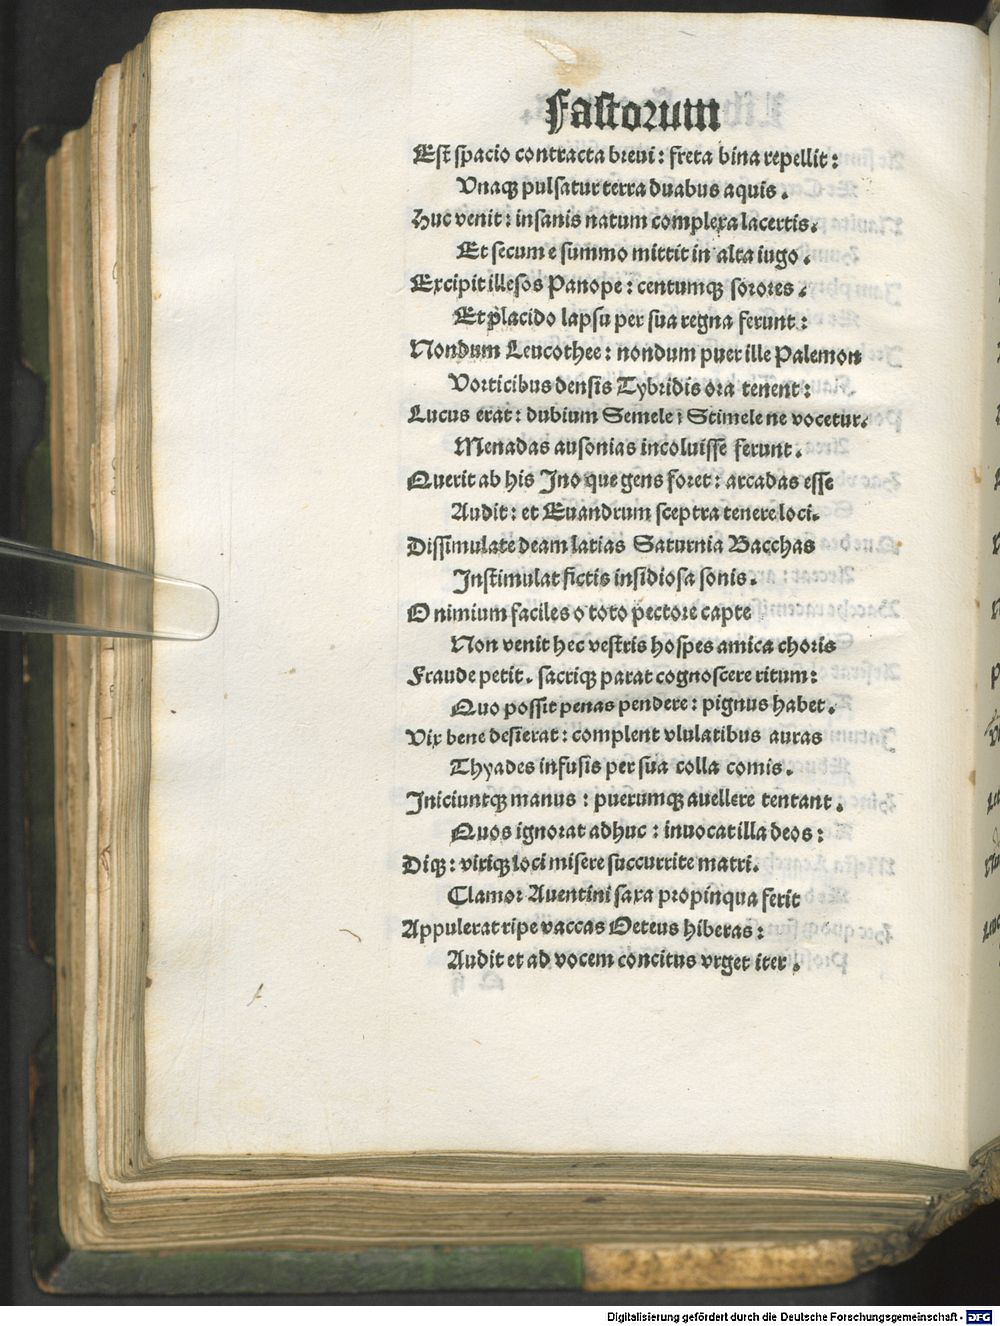 Fastorum
Est spacio contracta breui : freta bina repellit :
Vnaqꝫ pulsatur terra duabus aquis.
Huc venit : insanis natum complexa lacertis.
Et secum e summo mittit in alta iugo.
Excipit illesos Panope : centumqꝫ sorores.
Et placido lapsu per sua regna ferunt :
Nondum Leucothee : nondum puer ille Palemon
Vorticibus densis Tybridis ora tenent :
Lucus erat : dubium Semele : Stimele ne vocetur.
Menadas ausonias incoluisse ferunt.
Querit ab his Ino que gens foret : arcadas esse
Audit : et Euandrum sceptra tenere loci.
Dissimulate deam latias Saturnia Bacchas
Instimulat fictis insidiosa sonis.
O nimium faciles o toto pectore capte
Non venit hec vestris hospes amica choris
Fraude petit. sacriqꝫ parat cognoscere ritum :
Quo possit penas pendere : pignus habet.
Vix bene desierat : complent vlulatibus auras
Thyades infusis per sua colla comis.
Iniciuntqꝫ manus : puerumqꝫ auellere tentant.
Quos ignorat adhuc : inuocat illa deos :
Diqꝫ : viriqꝫ loci misere succurrite matri.
Clamor Auentini saxa propinqua ferit
Appulerat ripe vaccas Oeteus hiberas :
Audit et ad vocem concitus vrget iter.
Digitalisierung gefördert durch die Deutsche Forschungsgemeinschaft - DFG